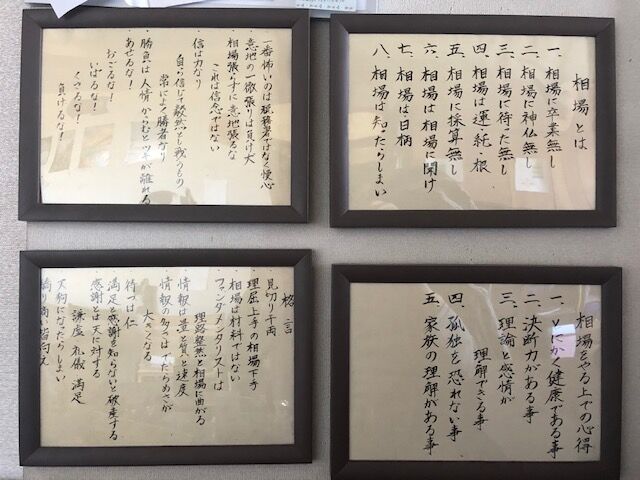 相場とは
一、相場に卒業無し
二、相場に神仏無し
三、相場に待った無し
四、相場は運・鈍・根
五、相場に採算無し
六、相場は相場に聞け
七、相場は日柄
八、相場は知ったらしまい
一番怖いのは税務署ではなく慢心
・意地の一徹張りは負け犬
・相場張らずに意地張るな
これは信念ではない
・信は力なり
自ら信じて毅然とし我うもの
常によく勝者なり
・勝負は人情からむとツキが離れる
あせるな!
おごるな!
いばるな!
くさるな!
負けるな!
相場をやる上での心得
一、とにかく健康である事
二、決断力がある事
三、理論と感情が
理解できる事
四、孤独を恐れない事
五、家族の理解がある事
格言
見切り千両
・理屈上手の相場下手
・相場は材料ではない
ファンダメンタリストは
理路整然と相場に曲がる
・情報は量と質と速度
・情報の多くはでたらめさが
大きくなる
・待つは仁
・満足と感謝を知らないと破産する
感謝とは天に対する
謙虚 礼儀 満足
・天狗になったらしまい